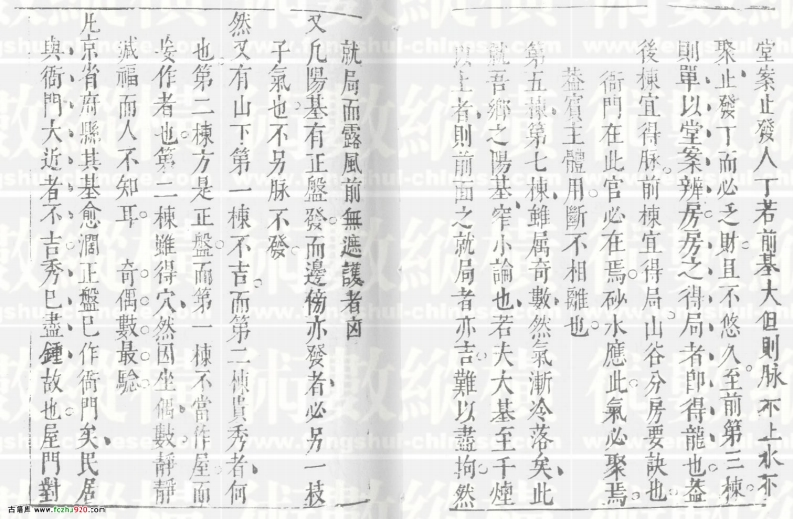 堂案止發人丁若前基大但則脉不上水不
聚止發丁而必乏財且不悠久至前第三棟
則單以堂案辨房房之得局者卽得龍也葢
後棟宜得脉前棟宜得局山谷分房要訣也
衙門在此官必在焉砂水應此氣必聚焉
葢賓主體用斷不相離也
第五棟第七棟雖属奇數然氣漸冷落矣此
就吾鄉之陽基窄小論也若夫大基至千煙
以上者則前面之就局者亦吉難以盡拘然
就局而露風前無遮護者凶
又凡陽基有正盤發而邊傍亦發者必另一枝
子氣也不另脉不發
然又有山下第一棟不吉而第二棟貴秀者何
也第二棟方是正盤而第一棟不當作屋而
妄作者也第二棟雖得穴然因坐偶數靜靜
減福而人不知耳 奇偶數最驗
凡京省府縣其基愈濶正盤已作衙門矣民居
與衙門大近者不吉秀已盡鍾故也屋門對
古易庫 www.fczhu920.com